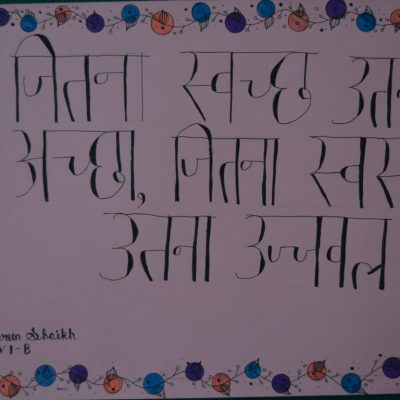 जितना स्वच्छ उतन
अच्छा, जितना स्वस्
उतना उज्जवल
Shaikh
VI-B